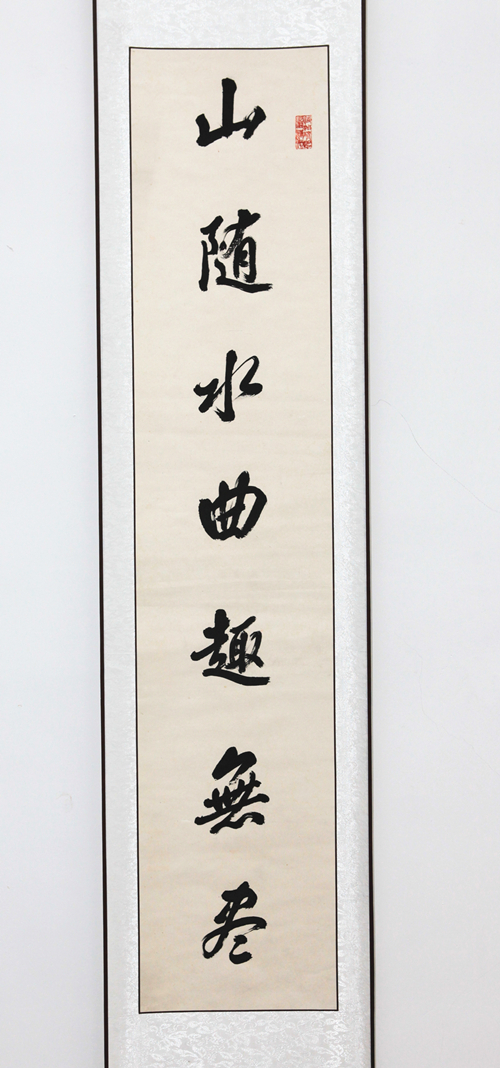 山随水曲趣無尽